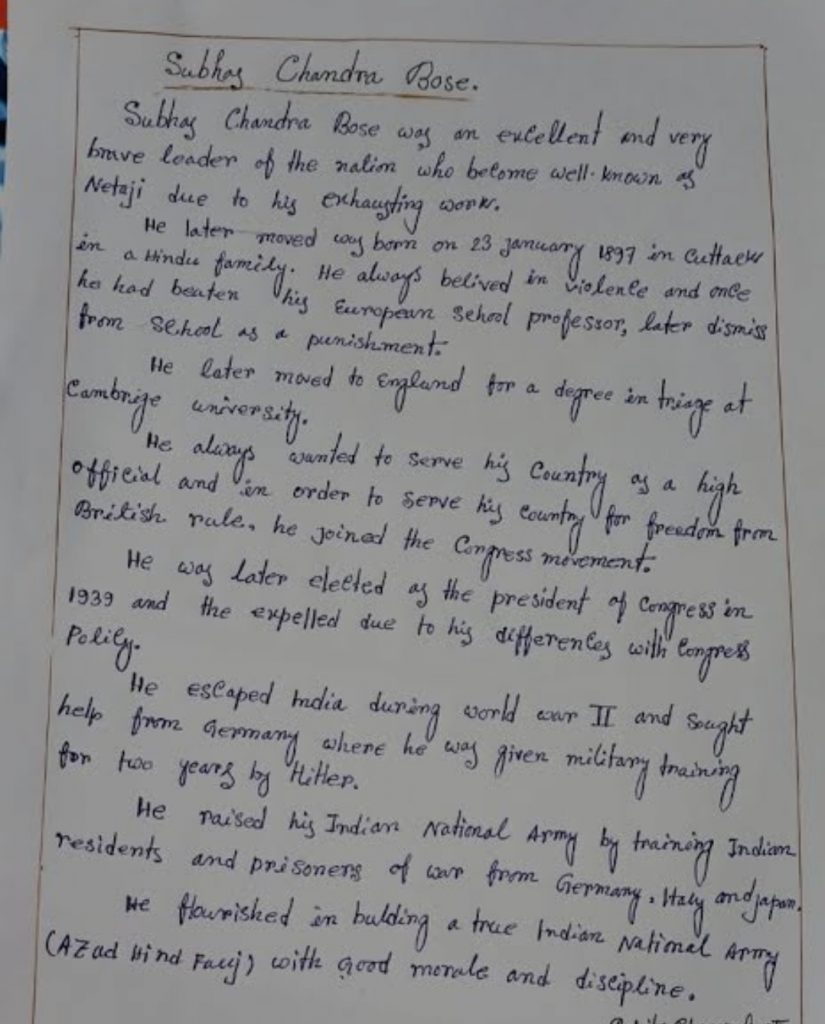 Subhas Chandra Bose.
Subhas Chandra Bose was an excellent and very
brave leader of the nation who become well-known as
Netaji due to his exhausting work.
He later moved was born on 23 January 1897 in Cuttack
in a Hindu family. He always belived in violence and once
he had beaten his European school professor, later dismiss
from school as a punishment.
He later moved to England for a degree in triage at
Cambrige university.
He always wanted to serve his Country as a high
official and in order to serve his country for freedom from
British rule. he joined the Congress movement.
He was later elected as the president of Congress in
1939 and the expelled due to his differences with Congress
Policy.
He escaped India during world war II and sought
help from Germany where he was given military training
for two years by Hitler.
He raised his Indian National Army by training Indian
residents and prisoners of war from Germany, Italy and japan.
He flourished in bulding a true Indian National Army
(AZad Hind Fauj) with Good morale and discipline.